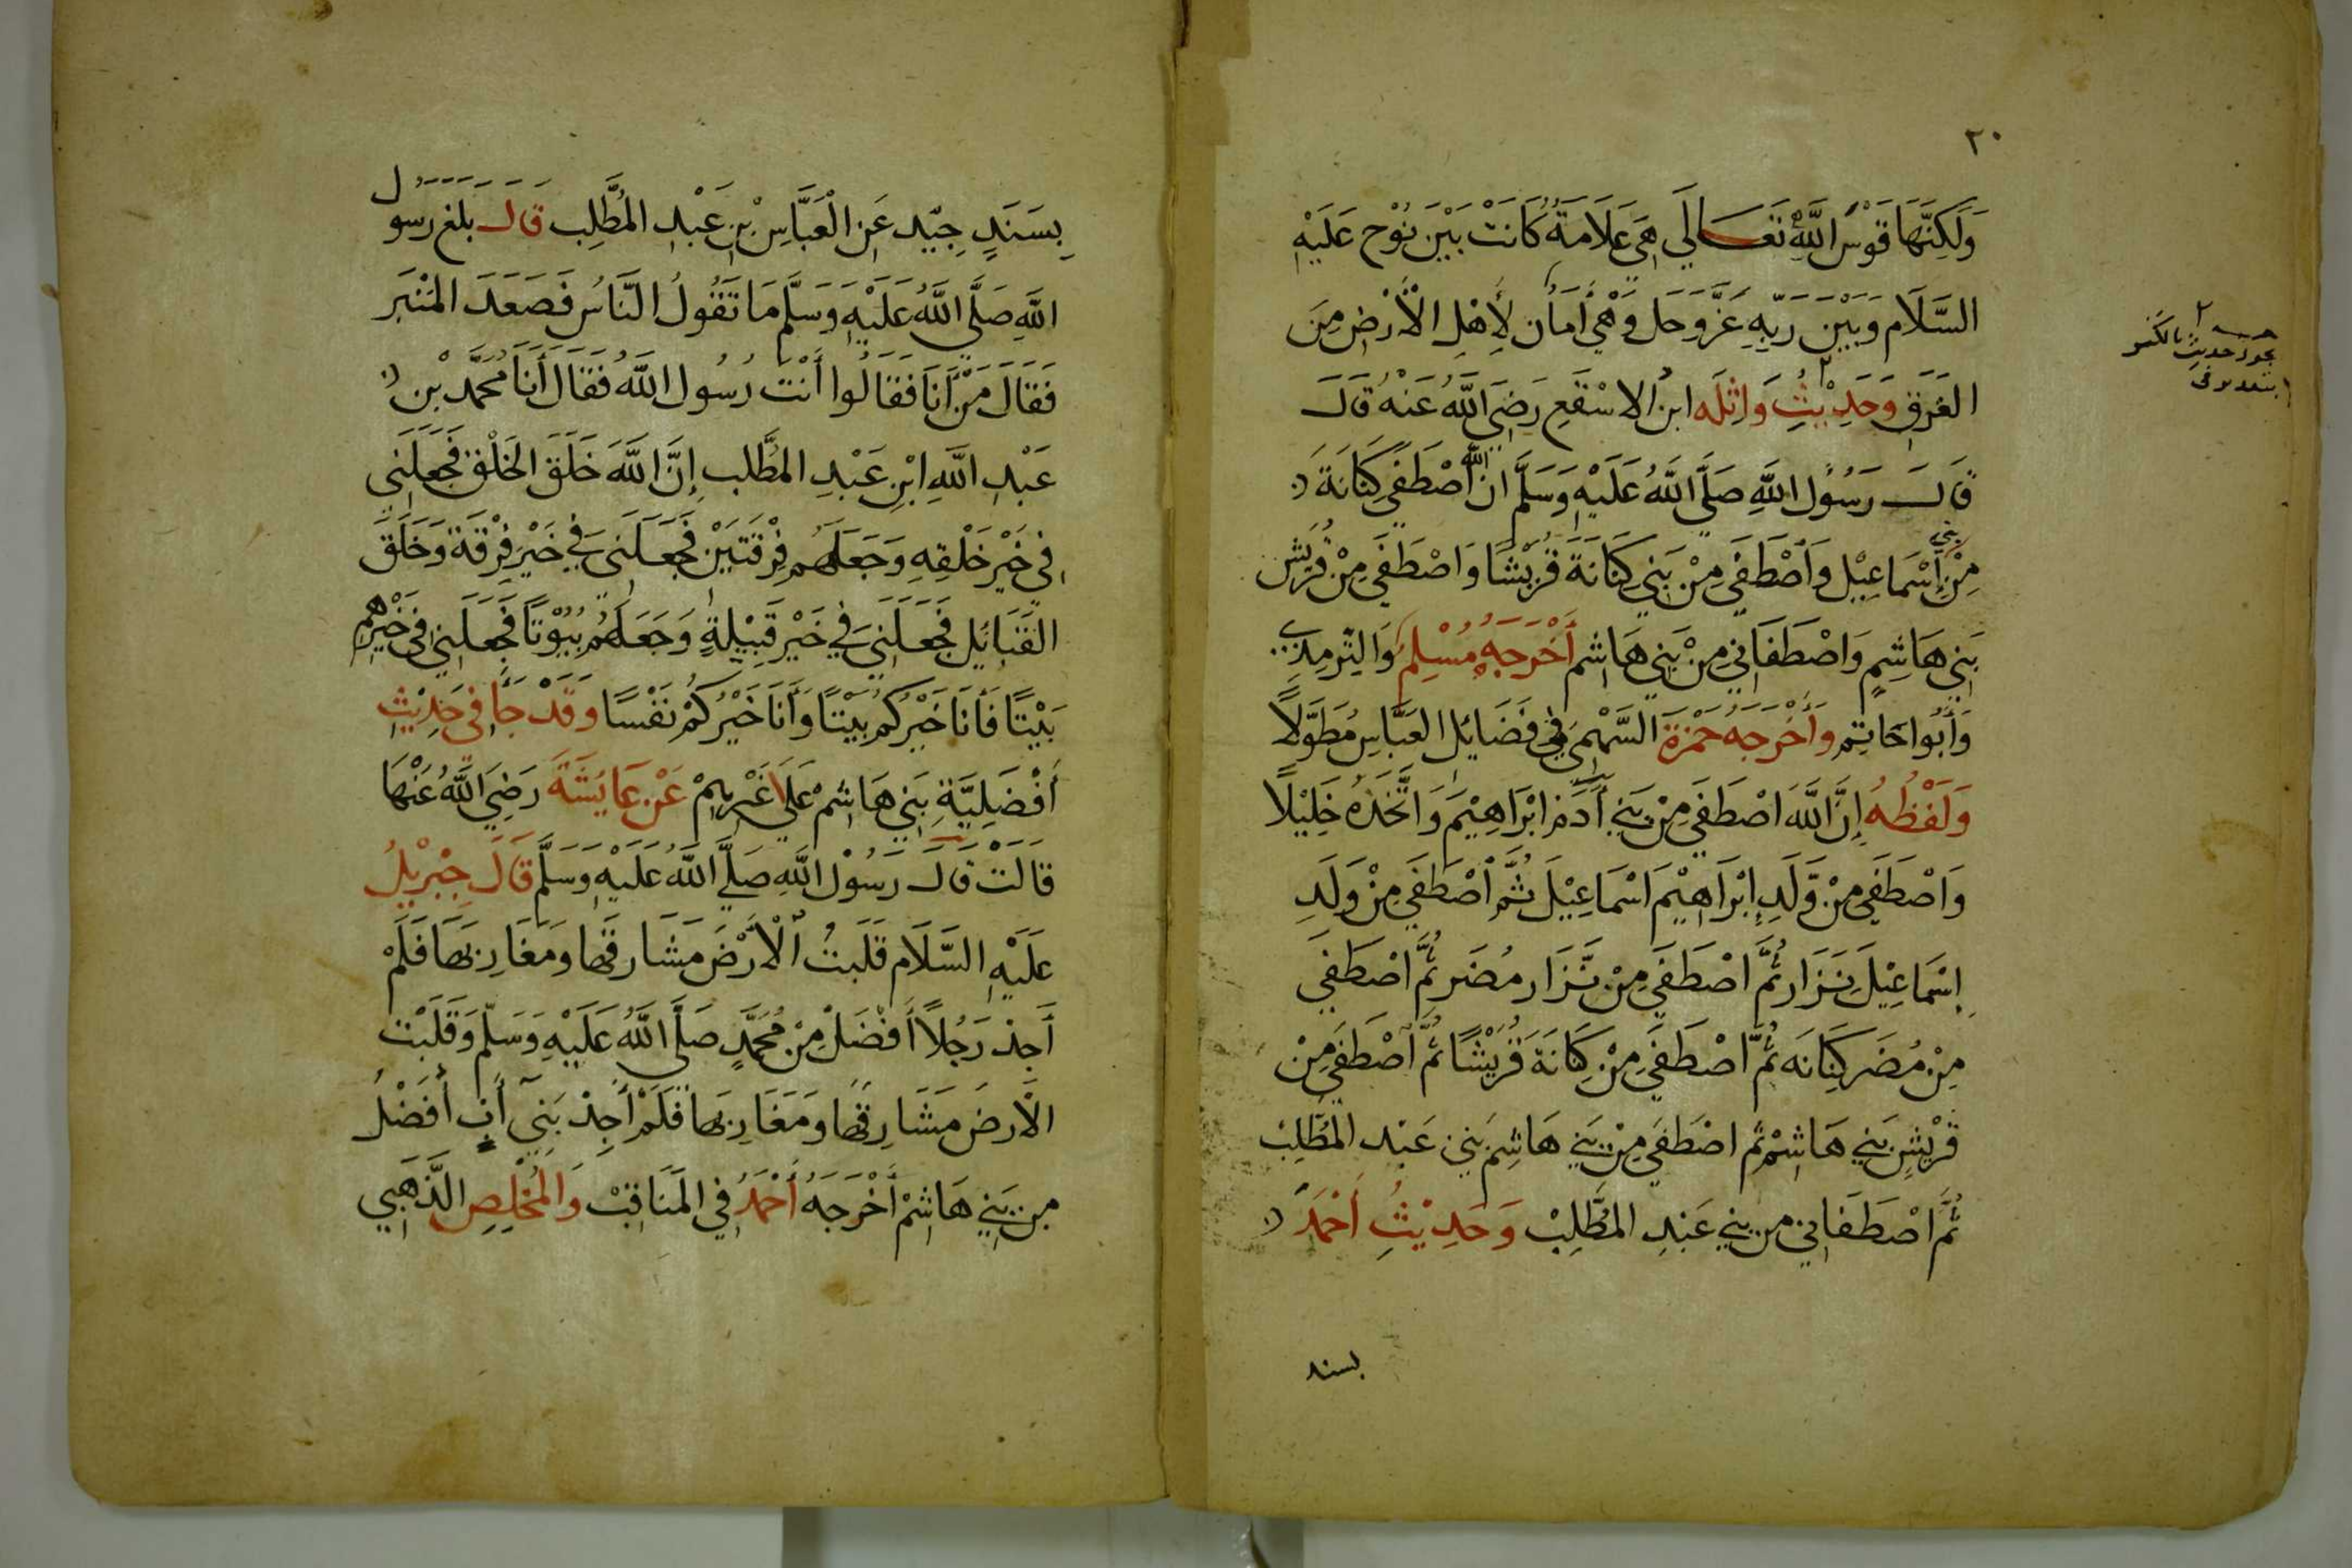 ٢٠
وَلَكِنَّهَا قَوْسُ اللَّهِ تَعَالَي هِيَ عَلَامَةٌ كَانَتْ بَيْنَ نُوْح عَلَيْهِ
السَّلَام وَبَيْنَ رَبِّهِ عَزَّ وَجَل وَهْيَ أَمَان لِأَهْلِ الْأَرْضِ مِنَ
الغَرَقِ وَحَدِيْثِ وَاثِلَه ابن الاسْقَعِ رَضِيَ اللَّهُ عَنْهُ قَالَ
قَالَ رَسُوْل اللَّهِ صَلَّي اللَّهُ عَلَيْهِ وَسَلَّم ان اللَّه أصْطَفَي كِنَانَةَ
مِنْ بني إِسْمَاعِيْل وَأصْطَفَي مِنْ بَنِي كِنَانَةَ قُرَيْشًا وَاصْطَفَي مِنْ قُرَيْش
بَنِي هَاشِمٍ وَاصْطَفَانِي مِنْ بَنِي هَاشِم أَخْرَجَهُ مُسْلِم وَالتِّرمِذِي
وَأَبُوا حَاتِم وَأَخْرَجَهُ حَمْزَةَ السَّهْمِي فِي فَضَائِل العَبَّاسِ مُطَوَّلًا
وَلَفْظُهُ إِنَّ اللَّهَ اصْطَفَي مِنْ بَنِي أَدَمَ ابْرَاهِيْمَ وَاتَّخَذَهُ خَلِيْلًا
وَاصْطَفَي مِنْ وَّلَدِ إِبْرَاهِيْمَ اسْمَاعِيْلَ ثُمَّ أصْطَفَي مِنْ وَلَدِ
اِسْمَاعِيْلَ نِزَار ثُمَّ اصْطَفَي مِنْ نِّزَار مُضَر ثُمَّ اصْطَفَي
مِنْ مُضَر كِنَانَه ثُمَّ اصْطَفَي مِنْ كِنَانَةَ قُرَيْشًا ثُمَّ أصْطَفَي مِنْ
قُرَيْشٍ بَنِي هَاشِمْ ثُم اصْطَفَي مِنْ بَنِي هَاشِم بَنِي عَبْد المُطَّلِبْ
ثُمَّ اصْطَفَانِي من بني عَبْدِ المُطَّلِبْ وَحَدِيْثِ أَحْمَدَ
بسند
يجوز حديث بالكسر
بِسَنَدٍ جِيّد عَنِ الْعَبَّاسِ بْنِ عَبْدِ المُطَّلِب قَالَ بلغ رسول
اللَّهِ صَلَّي اللَّهُ عَلَيْهِ وَسَلَّم مَا تَقُولُ النَّاسُ فَصَعَدَ المِنْبَر
فَقَالَ مَنْ أَنَا فَقَالُوا أَنْتَ رُسُول اللَّهِ فَقَالَ أَنَا مُحَمَّد بْن
عَبْدِ اللَّهِ ابْنِ عَبْدِ المُطَّلب إِنَّ اللَّهَ خَلَقَ الخَلْق فَجَعَلَنِي
فِي خَيْر خَلْقِهِ وَجَعَلَهُم فِرْقَتَيْن فَجَعَلَنِي فِي خَيْرِ فِرْقَة وَخَلَقَ
القَبَائِل فَجَعَلَنِي فِي خَيْر قَبِيْلَةٍ وَجَعَلَهُم بُيُوْتًا فَجَعَلَنِي فِي خَيْرِهِم
بَيْتًا فَأَنَا خَيْرُكُم بَيْتًا وَأَنَا خَيْرُكُمْ نَفْسًا وَقَدْ جَأَ فِي حَدِيْثِ
أَفْضَلِيَّةِ بَنِي هَاشِمْ عَلَي غَيْرِهِمْ عَنْ عَايَشَةَ رَضِيَ اللَّهُ عَنْهَا
قَالَتْ قَالَ رَسُوْل اللَّهِ صَلَّي اللَّهُ عَلَيْهِ وَسَلَّم قَالَ جِبْرِيْلُ
عَلَيْهِ السَّلَام قَلَبْتُ الْأَرْضَ مَشَارِقَهَا وَمَغَارِبَهَا فَلَمْ
أَجِدْ رَجُلًا أَفْضَلْ مِنْ مُحَمَّدٍ صَلَّي اللَّهُ عَلَيْهِ وَسَلَّم وَقَلَبْت
الْأَرضَ مَشَارِقَهَا وَمَغَارِبَهَا فَلَمْ أَجِدْ بَنِي أَبٍ أَفْضَلُ
مِن بَنِي هَاشِمْ أَخْرَجَهُ أَحْمَدُ فِي المَنَاقِبْ وَالمُخْلِصِ الذَّهَبِي